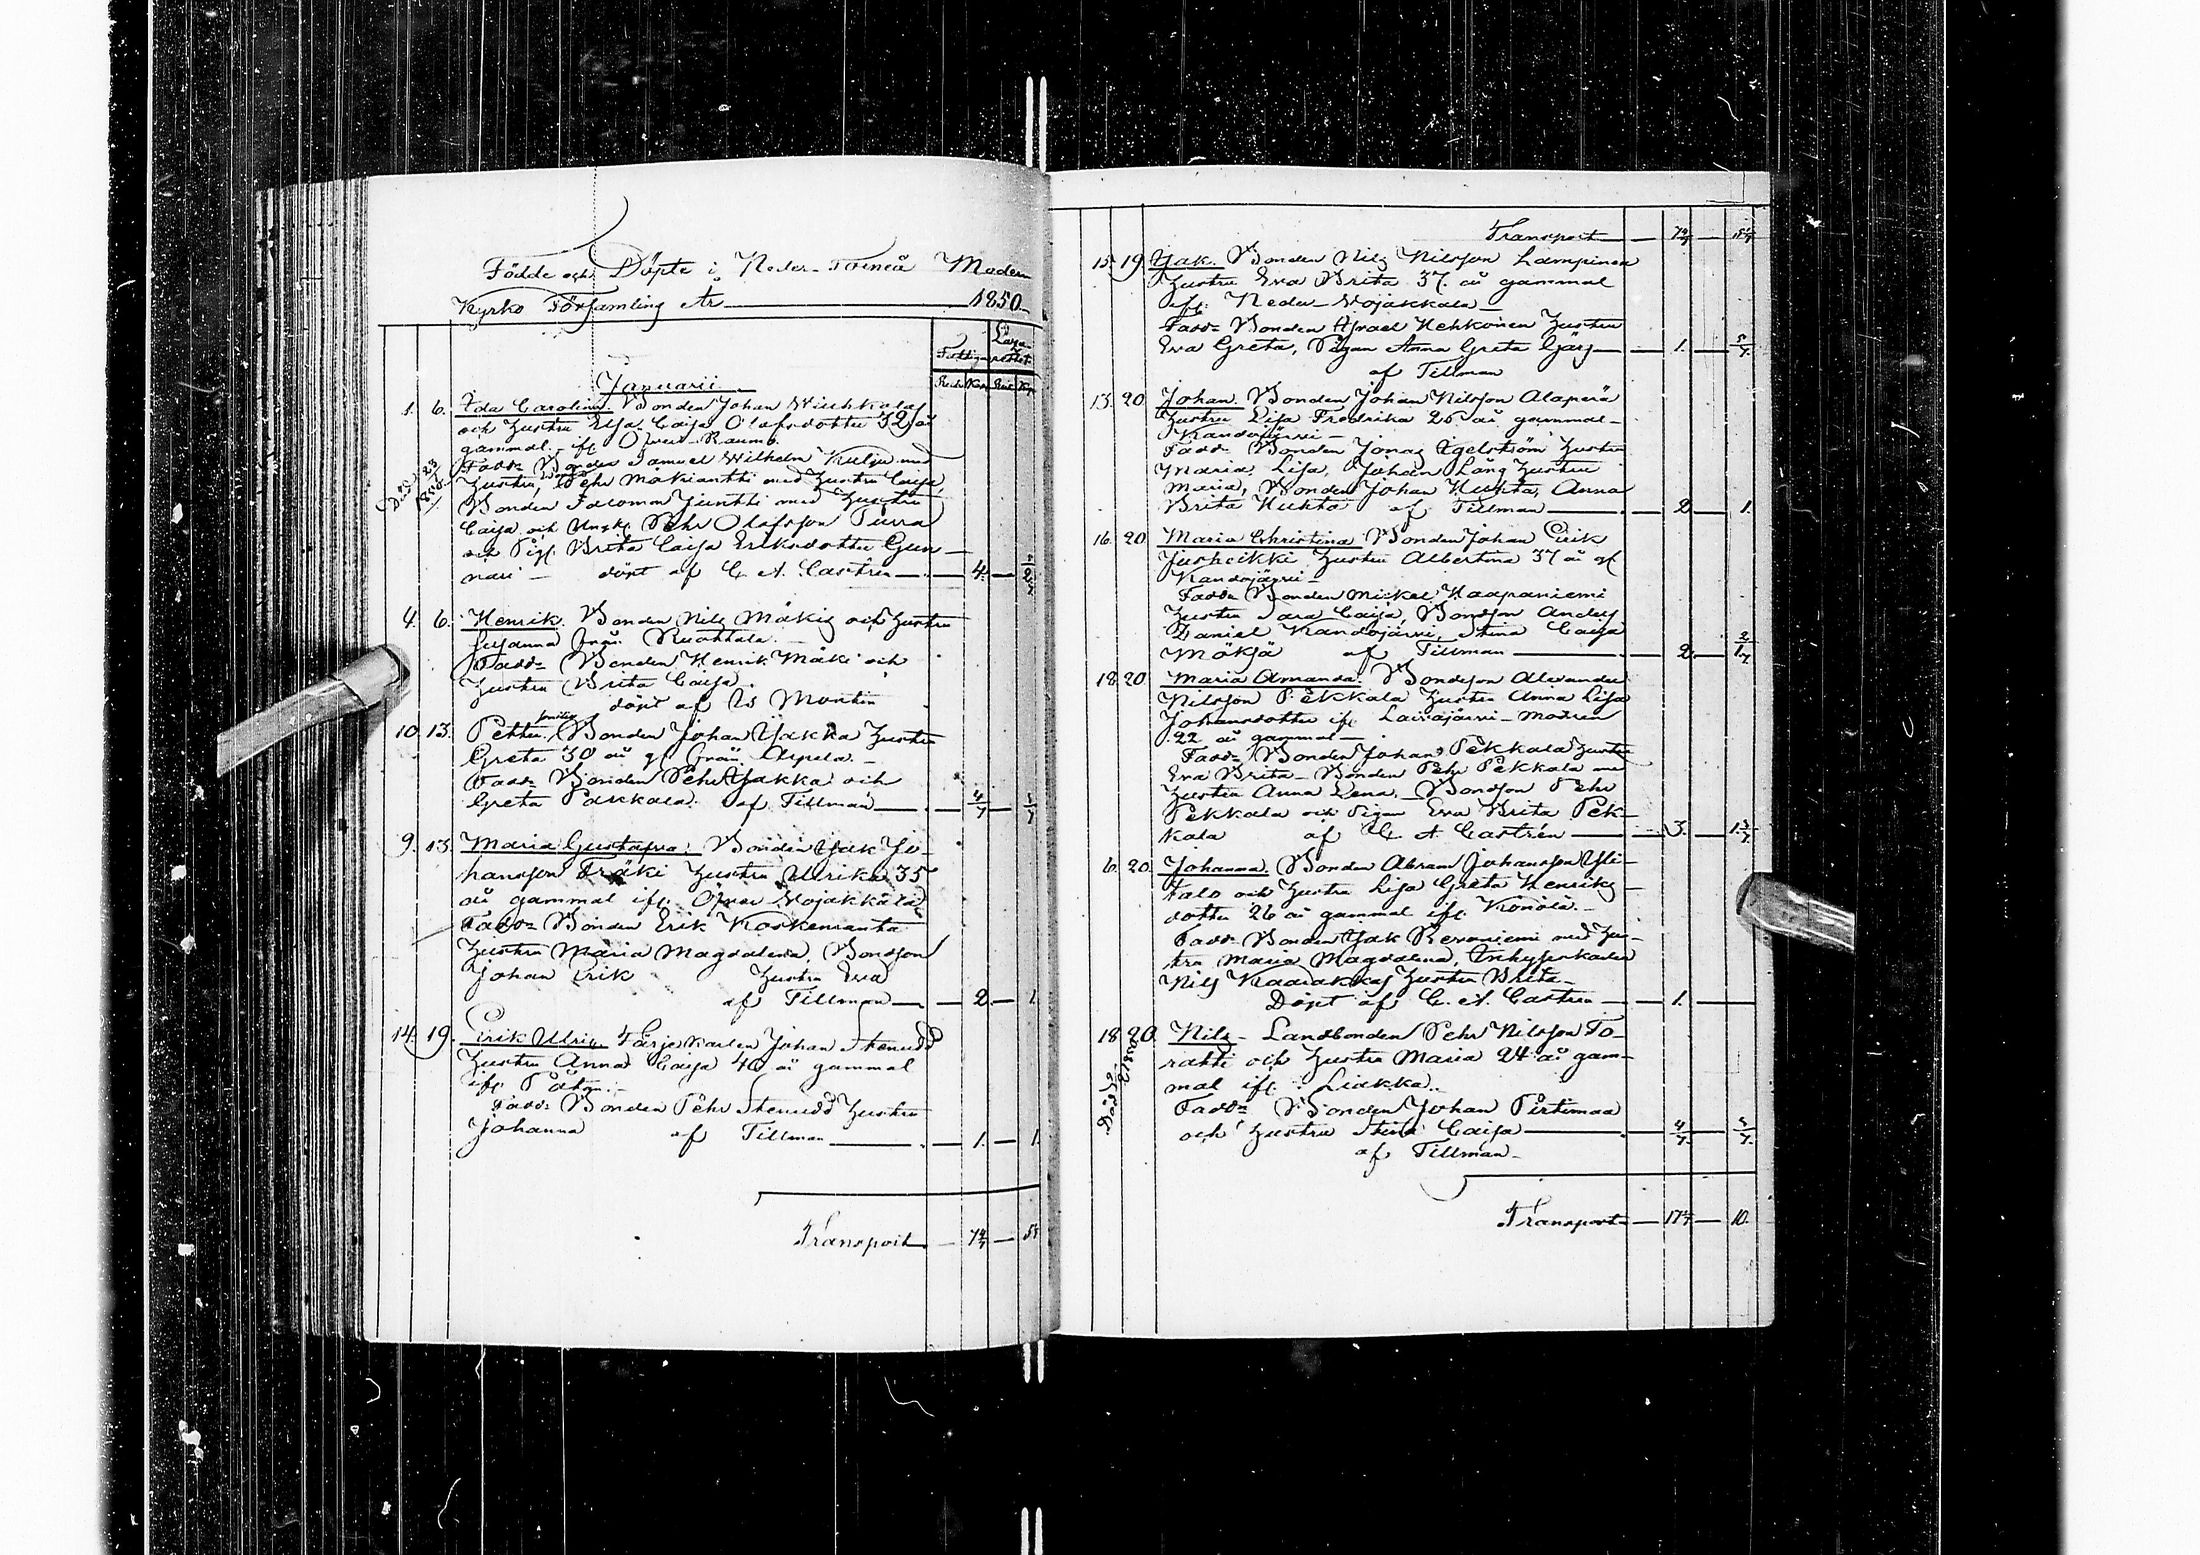 Födde och Döpte i Neder-Torneå Moder
Kyrko Församling År 1850
Fattig
Januarii
Rub Kop Rub Kop
1. 6. Ida Carolina. Bonden Johan
och hustru Elsa Caisa Olofsdotter 32 år
gammal ifr Öfver-Raumo
Fadd= Bonden Samuel Wilhelm Kulju med
hustru, Pehr Mäkianttti med hustru Caisa,
Bonden Salomon Juntti med hustru
Caisa och Ungk. Pehr Olofsson Purra
och Pig. Brita Caisa Eriksdotter Gun-
nari — döpt af C. A. Castrén 4.
4. 6. Henrik. Bonden Nils Mäki och hustru
Susanna från Ruottala.
Fadd= Bonden Henrik Mäki och
hustru Brita Caisa.
döpt af Is Montin
10. 13. Petter. Bonden Johan Yakka hustru
Greta 30 år gl från Arpela.
Fadd= Bonden Pehr Yakka och
Greta Pakkala. af Tillman 4/7
9. 13. Maria Gustafva. Bonden Isak Jo-
hansson Fräki hustru Ulrika 35
år gammal ifr. Öfver Vojakkala
Fadd= Bonden Erik Koskenranta
hustru Maria Magdalena, Bondson
Johan Erik hustru Eva
af Tillman 2. 1.
14. 19. Erik Ulrik Färjekarlen Johan Stenudd
hustru Anna Caisa 40 år gammal
ifr
Fadd= Bonden Pehr Stenudd hustru
Johanna af Tillman 1. 1.
Transport
Transport
15. 19. Isak. Bonden Nils Nilsson Lampinen
hustru Eva Brita 37. år gammal
ifr. Neder-Vojakkala
Fadd= Bonden Israel Hehkonen hustru
Eva Greta, Pigan Anna Greta 1. 5/7
af Tillman
13. 20. Johan. Bonden Johan Nilsson Alaperä
hustru Lisa Fredrika 26 år gammal
Kandojärvi
Fadd= Bonden Jonas Egelström hustru
Maria Lisa, Johan Lång hustru
Maria, Bonden Johan Huhta, Anna
Brita Huhta af Tillman 2 1.
16. 20. Maria Christina. Bonden Johan Erik
Juoheikki hustru Albertina 37 år gl
Kandojärvi
Fadd= Bonden Mickel Haapaniemi
hustru Sara Caisa, Bondson Anders
Daniel Kandojärvi, Stina Caisa
Mäksä af Tillman 2. 1 2/7
18. 20. Maria Amanda. Bondson Alexander
Nilsson Pekkala hustru Anna Lisa
Johansdotter ifr Laivajärvi - modren
22 år gammal
Fadd= Bonden Johan Pekkala hustru
Eva Brita - Bonden Pehr Pekkala
hustru Anna Lena - Bondson Pehr
Pekkala och Pigan Eva Brita Pek-
kala af C. A. Castrén 3.
6. 20. Johanna. Bonden Abram Johansson Yli-
talo och hustru Lisa Greta Henriks-
dotter 26 år gammal ifr. Könölä.
Fadd= Bonden Isak Revoniemi med hu-
stru Maria Magdalena, Inhysinkarlen
Nils hustru Brita
Döpt af C. A. Castrén 1.
18. 20. Nils - Landbonden Pehr Nilsson To-
ratti och hustru Maria 24 år gam-
mal ifr. Liakka.
Fadd= Bonden Johan Pirtimaa
och hustru Stina Caisa 4/7 5/7
af Tillman
Transport 10.